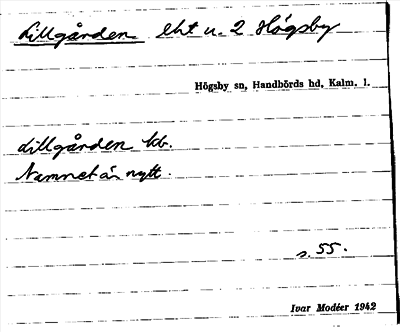 Lillgården lht u. 2 Högsby
Högsby sn, Handbörds hd, Kalm. l.
Lillgården kb.
Namnet är nytt.
s. 55.
Ivar Modéer 1942